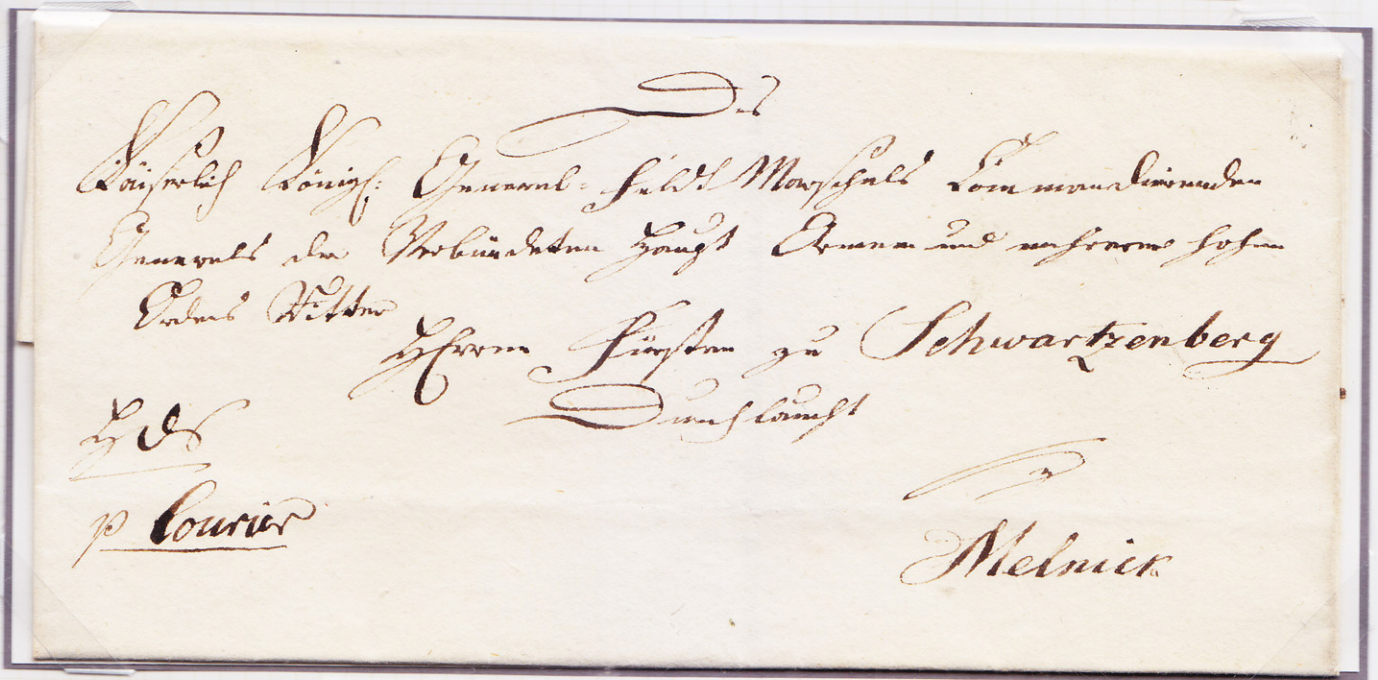 Des
Kaiserlich Königl: General-Feldt Marschals Commandierenden
Generals der Verbündeten Haupt Armee und mehrerer hohen
Ordens Ritter
Herrn Fürsten zu Schwartzenberg
Durchlaucht
HdS
p Courier
Melnick